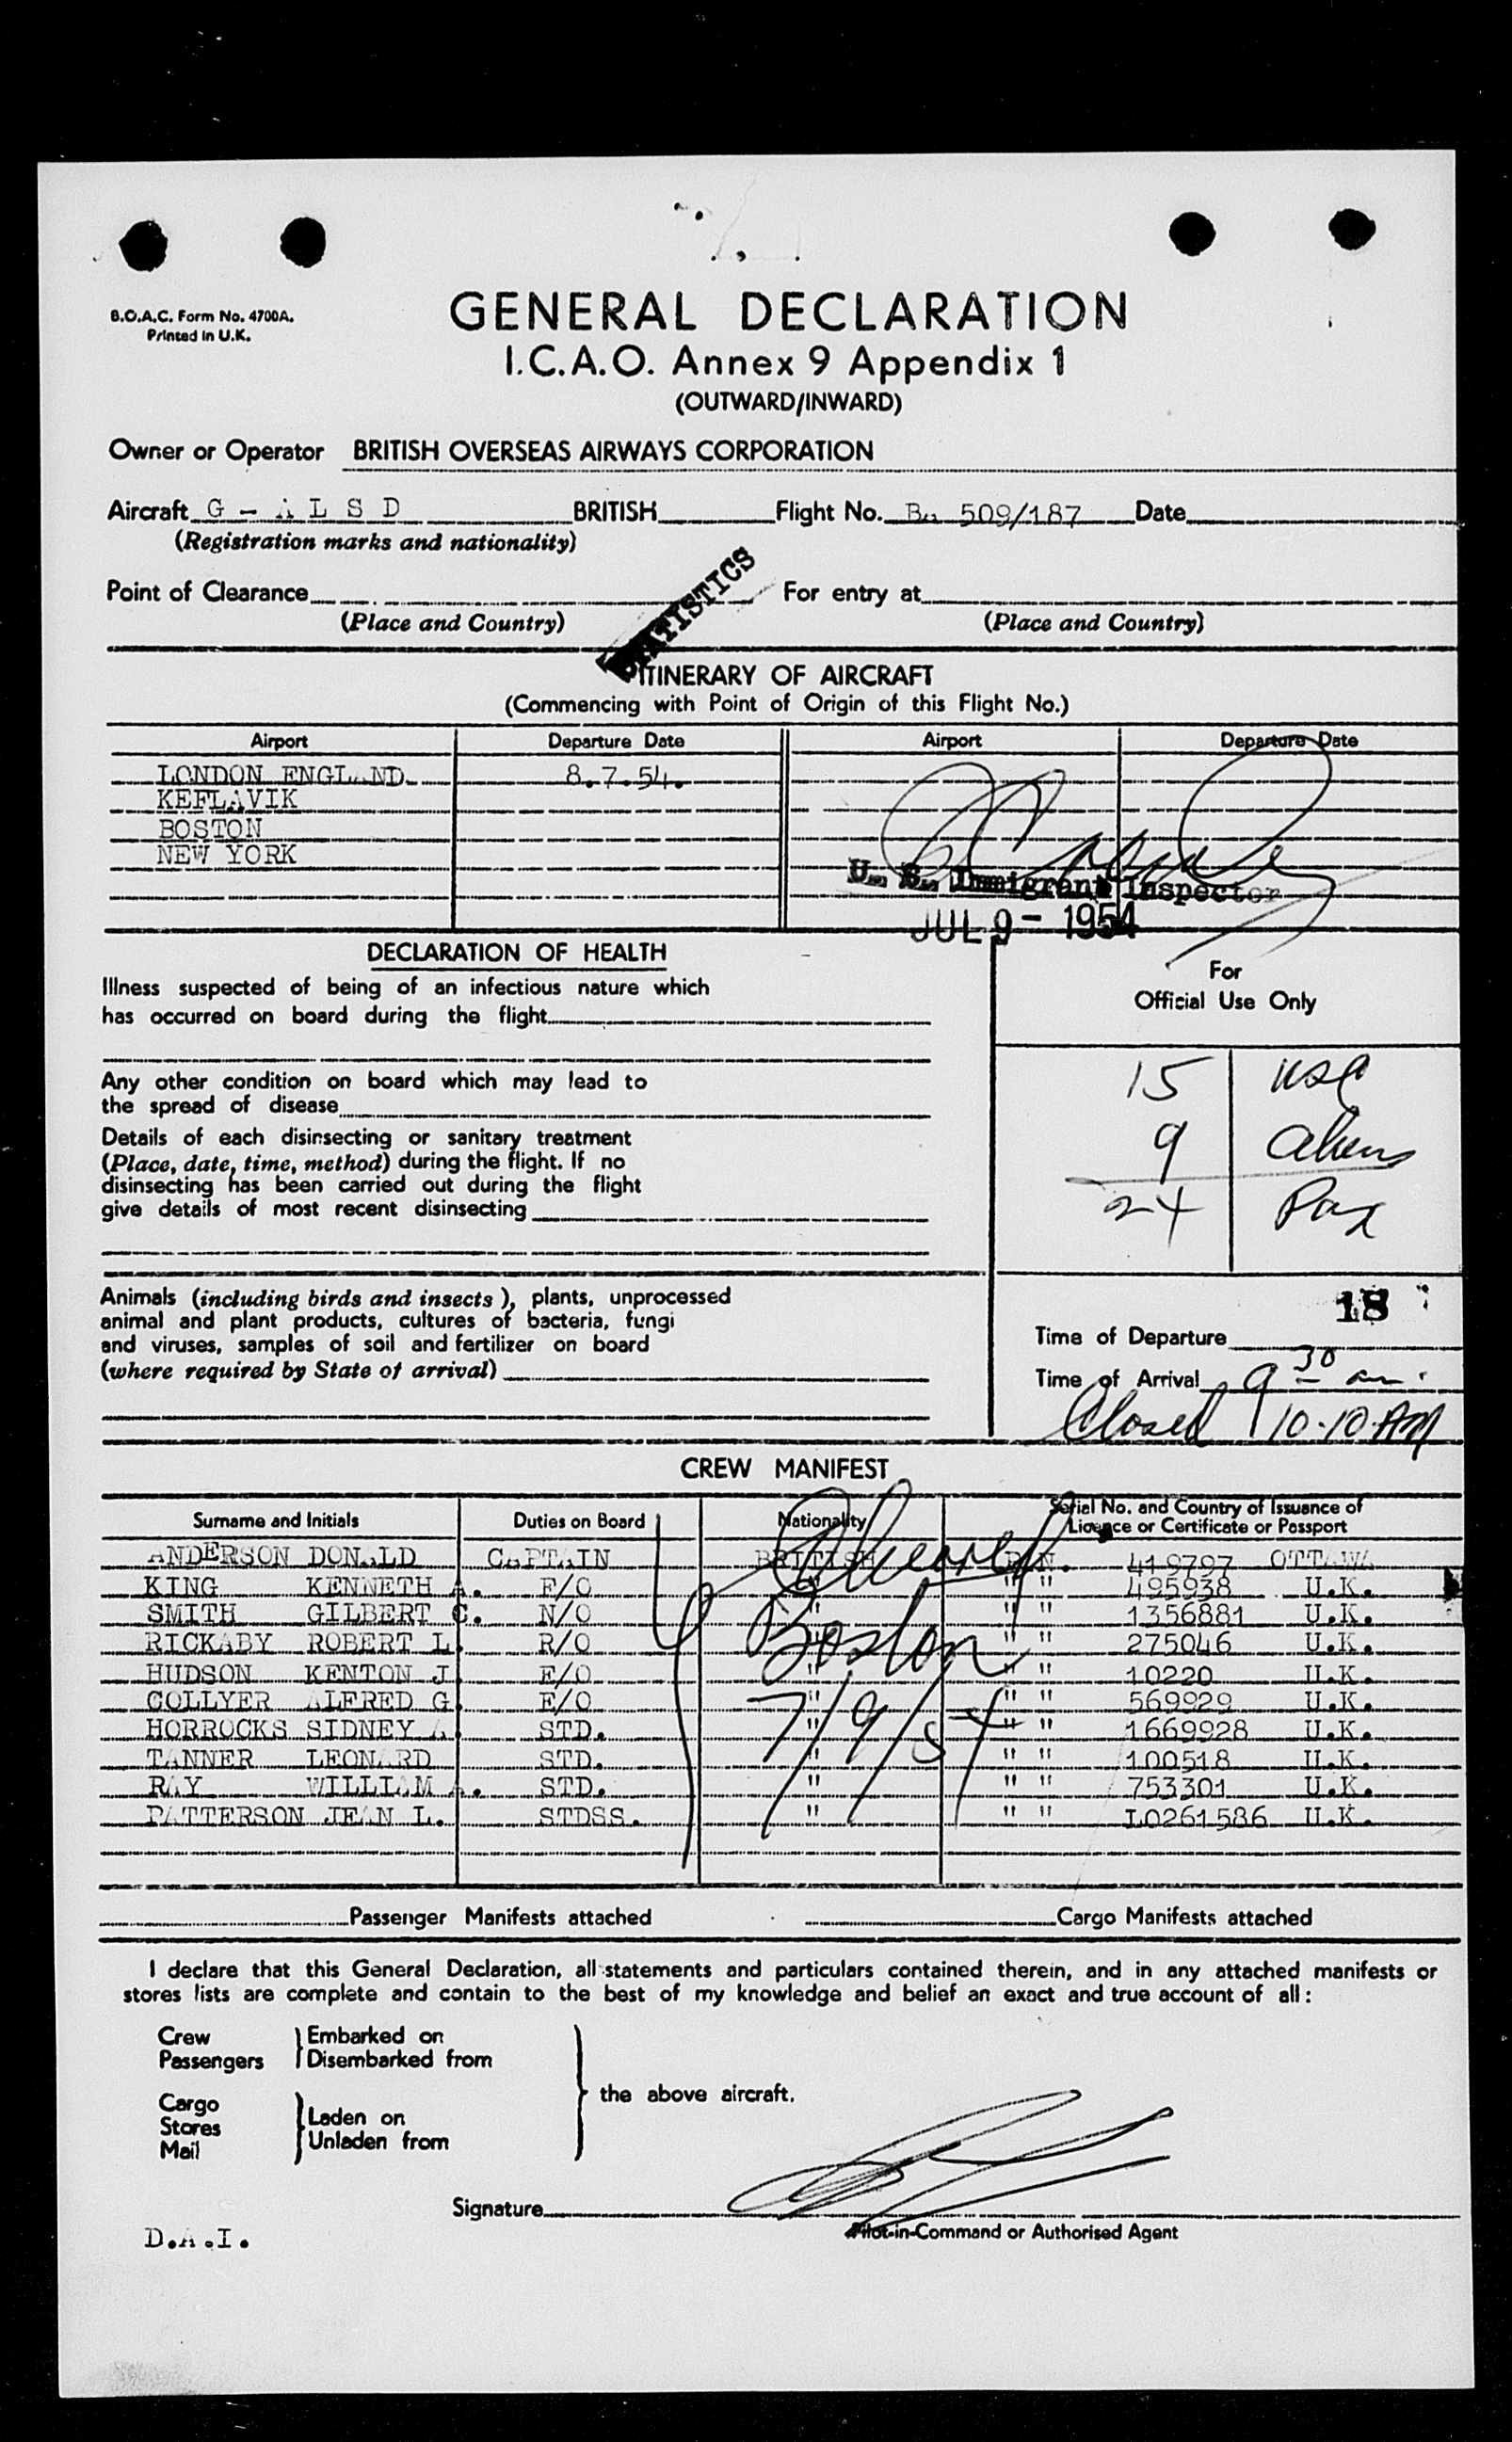 B.O.A.C. Form No. 4700A.
Printed in U.K.
GENERAL DECLARATION
I.C.A.O. Annex 9 Appendix 1
(OUTWARD/INWARD)
Owner or Operator BRITISH OVERSEAS AIRWAYS CORPORATION
Aircraft G - A L S D BRITISH Flight No. BA 509/187 Date
(Registration marks and nationality)
STATISTICS
Point of Clearance For entry at
(Place and Country) (Place and Country)
ITINERARY OF AIRCRAFT
(Commencing with Point of Origin of this Flight No.)
Airport Departure Date Airport Departure Date
LONDON ENGLAND. 8.7.54.
KEFLAVIK
BOSTON
NEW YORK
U. S. Immigrant Inspector
JUL 9 - 1954
DECLARATION OF HEALTH
Illness suspected of being of an infectious nature which
has occurred on board during the flight
Any other condition on board which may lead to
the spread of disease
Details of each disinsecting or sanitary treatment
(Place, date, time, method) during the flight. If no
disinsecting has been carried out during the flight
give details of most recent disinsecting
Animals (including birds and insects), plants, unprocessed
animal and plant products, cultures of bacteria, fungi
and viruses, samples of soil and fertilizer on board
(where required by State of arrival)
For
Official Use Only
15 USC
9 Aliens
24 Pax
18
Time of Departure
Time of Arrival 9 30 am.
Closed 10.10 AM
CREW MANIFEST
Surname and Initials Duties on Board Nationality Serial No. and Country of Issuance of
Licence or Certificate or Passport
ANDERSON DONALD CAPTAIN BRITISH P.N. 419797 OTTAWA
KING KENNETH A. F/O " " " 495938 U.K.
SMITH GILBERT C. N/O " " " 1356881 U.K.
RICKABY ROBERT L. R/O " " " 275046 U.K.
HUDSON KENTON J. E/O " " " 10220 U.K.
COLLYER ALFRED G. E/O " " " 569929 U.K.
HORROCKS SIDNEY A. STD. " " " 1669928 U.K.
TANNER LEONARD STD. " " " 100518 U.K.
RAY WILLIAM A. STD. " " " 753301 U.K.
PATTERSON JEAN L. STDSS. " " " L0261586 U.K.
Cleared
Boston
7/9/54
Passenger Manifests attached Cargo Manifests attached
I declare that this General Declaration, all statements and particulars contained therein, and in any attached manifests or
stores lists are complete and contain to the best of my knowledge and belief an exact and true account of all:
Crew Embarked on
Passengers Disembarked from
the above aircraft.
Cargo
Stores Laden on
Mail Unladen from
Signature
Pilot-in-Command or Authorised Agent
D.A.I.